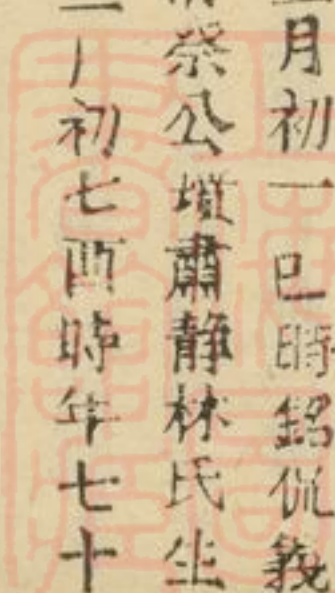 月初一巳時銘侃義
祭公壇肅靜林氏生
初七酉時年七十